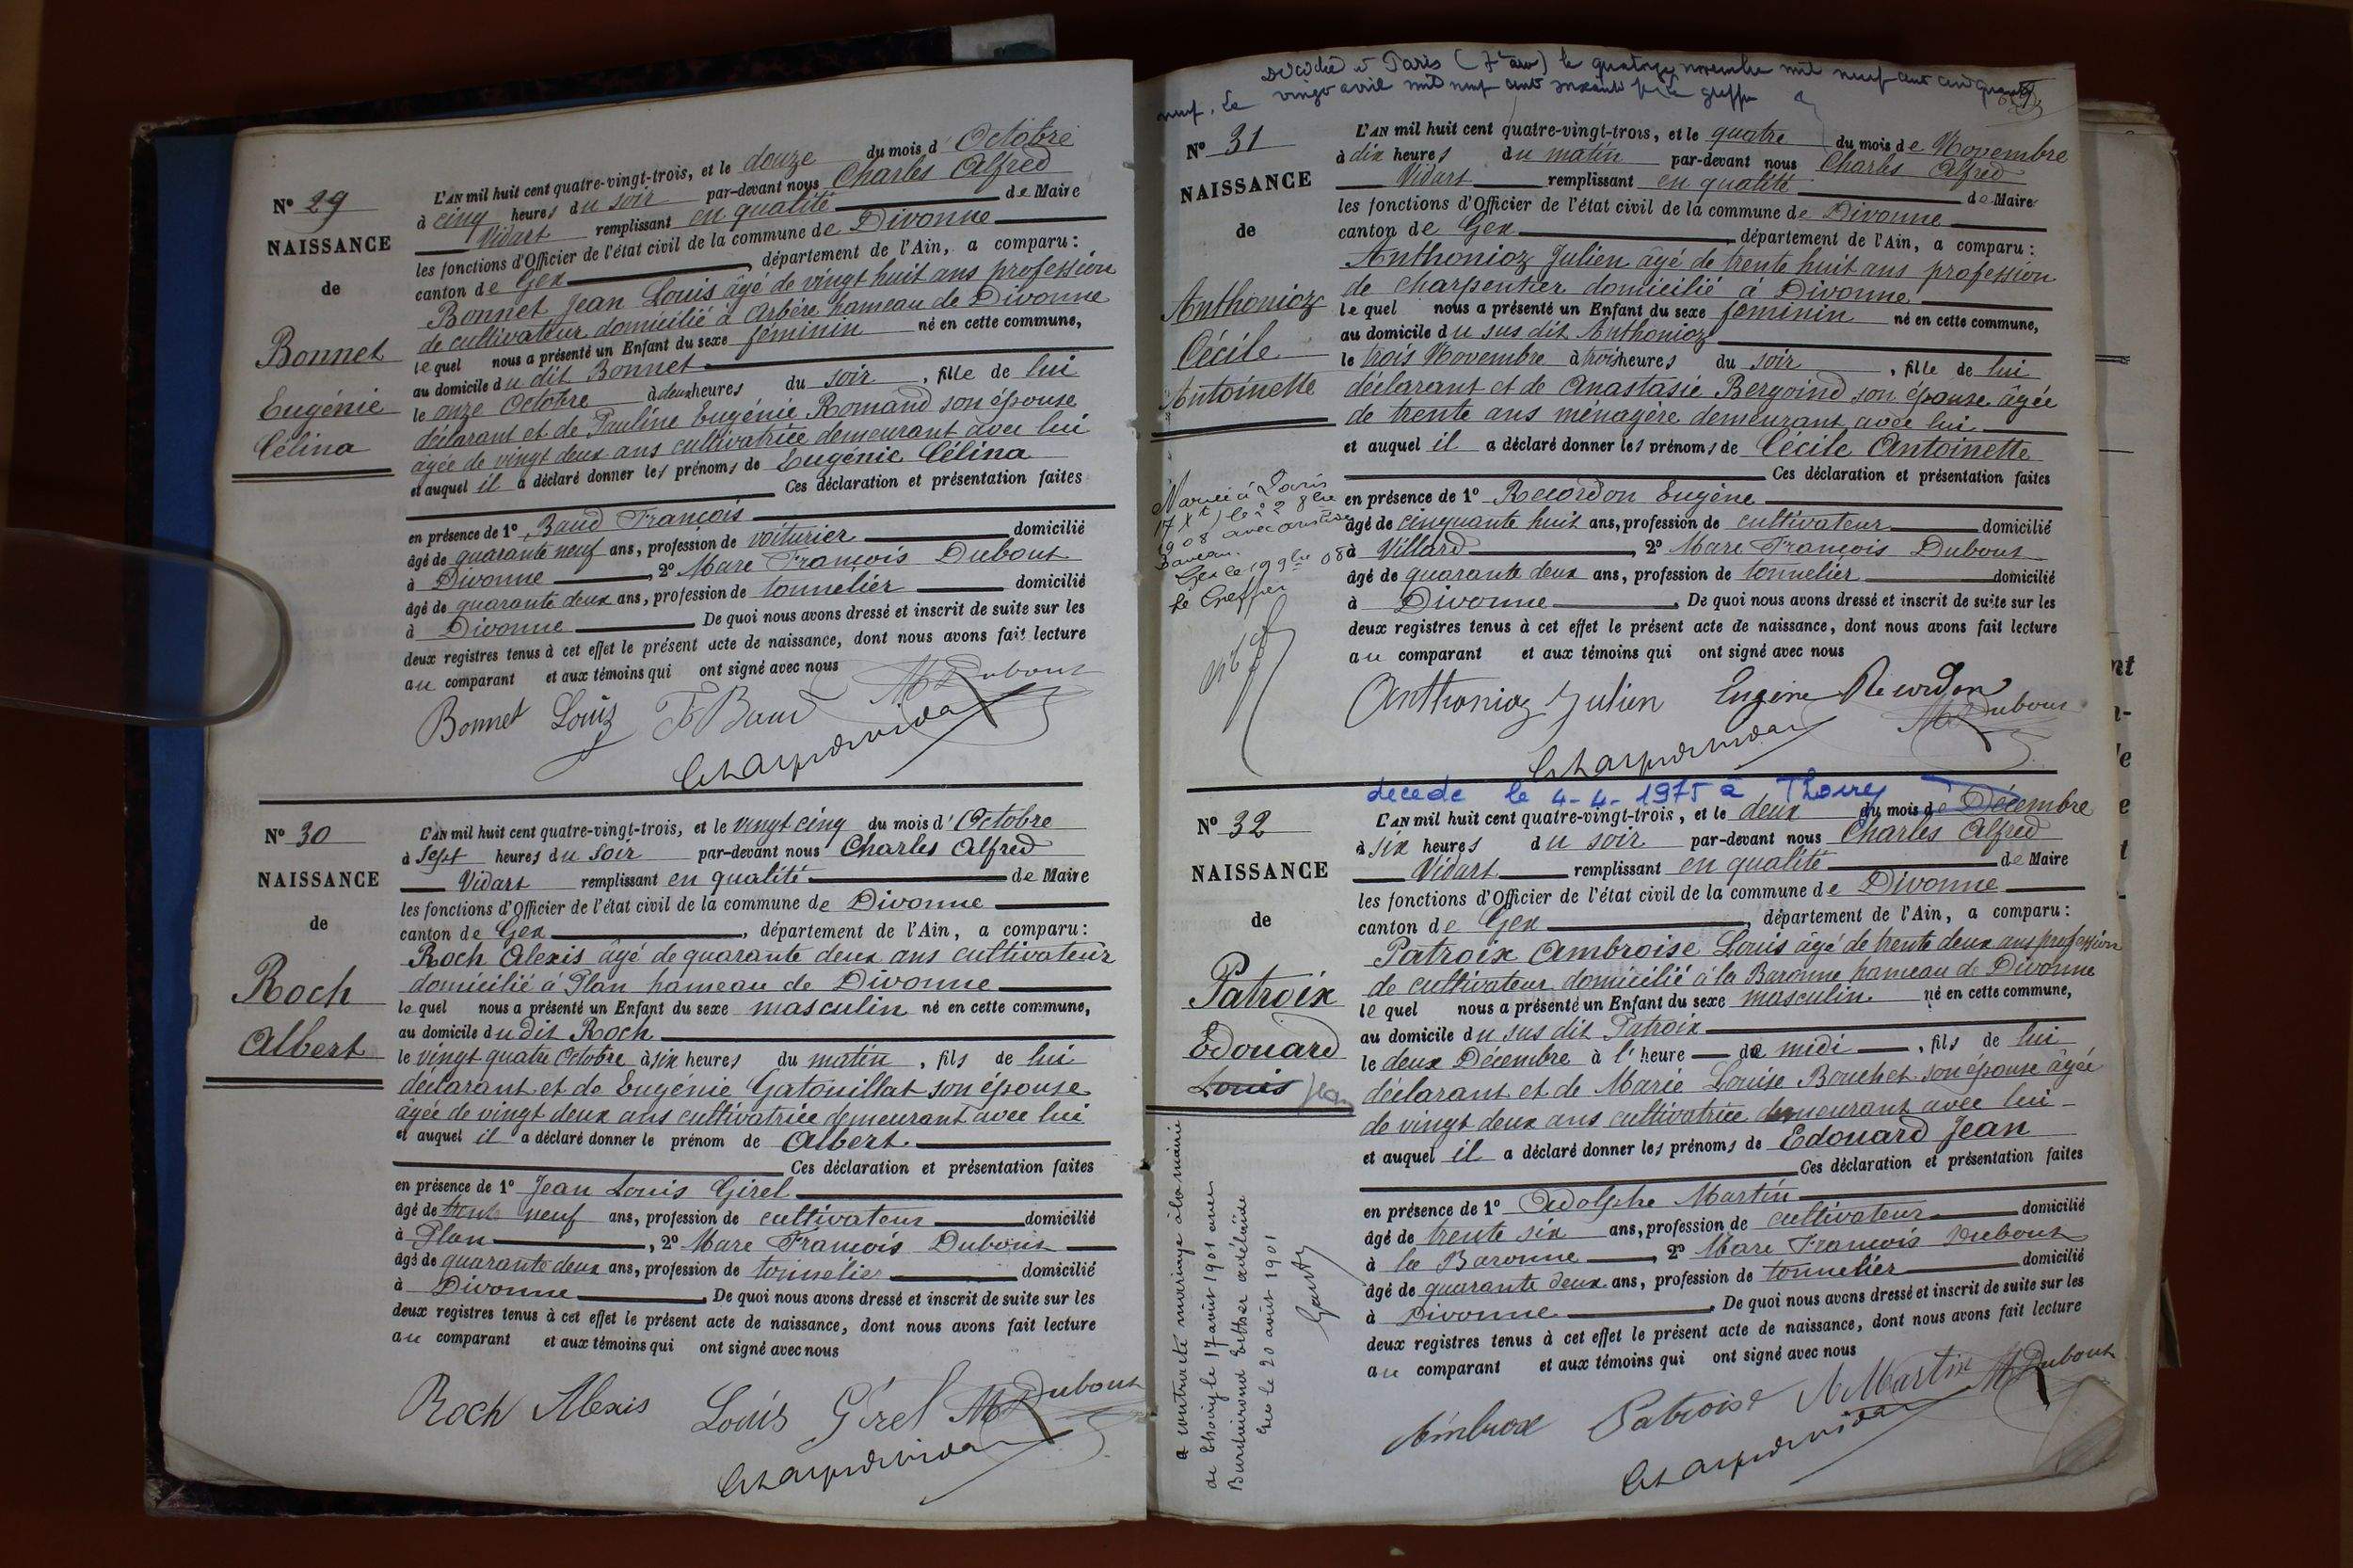 N° 29
NAISSANCE
de
Bonnet
Eugénie
Célina
L'AN mil huit cent quatre-vingt-trois, et le douze du mois d'Octobre
à cinq heures du soir par-devant nous Charles Alfred
Vidart remplissant en qualité de Maire
les fonctions d'Officier de l'état civil de la commune de Divonne
canton de Gex, département de l'Ain, a comparu:
Bonnet Jean Louis âgé de vingt huit ans profession
de cultivateur domicilié à Arbère hameau de Divonne
lequel nous a présenté un Enfant du sexe féminin né en cette commune,
au domicile du dit Bonnet
le onze Octobre à deux heures du soir, fille de lui
déclarant et de Pauline Eugénie Romand son épouse
âgée de vingt deux ans cultivatrice demeurant avec lui
et auquel il a déclaré donner les prénoms de Eugénie Célina
Ces déclaration et présentation faites
en présence de 1° Baud François
âgé de quarante neuf ans, profession de voiturier domicilié
à Divonne, 2° Marc François Dubout
âgé de quarante deux ans, profession de tonnelier domicilié
à Divonne. De quoi nous avons dressé et inscrit de suite sur les
deux registres tenus à cet effet le présent acte de naissance, dont nous avons fait lecture
au comparant et aux témoins qui ont signé avec nous
Bonnet Louis F Baud M Dubout
N° 30
NAISSANCE
de
Roch
Albert
L'AN mil huit cent quatre-vingt-trois, et le vingt cinq du mois d'Octobre
à sept heures du soir par-devant nous Charles Alfred
Vidart remplissant en qualité de Maire
les fonctions d'Officier de l'état civil de la commune de Divonne
canton de Gex, département de l'Ain, a comparu:
Roch Alexis âgé de quarante deux ans cultivateur
domicilié à Plan hameau de Divonne
lequel nous a présenté un Enfant du sexe masculin né en cette commune,
au domicile du dit Roch
le vingt quatre Octobre à six heures du matin, fils de lui
déclarant et de Eugénie Gatouillat son épouse
âgée de vingt deux ans cultivatrice demeurant avec lui
et auquel il a déclaré donner le prénom de Albert.
Ces déclaration et présentation faites
en présence de 1° Jean Louis Girel
âgé de trente neuf ans, profession de cultivateur domicilié
à Plan, 2° Marc François Dubout
âgé de quarante deux ans, profession de tonnelier domicilié
à Divonne. De quoi nous avons dressé et inscrit de suite sur les
deux registres tenus à cet effet le présent acte de naissance, dont nous avons fait lecture
au comparant et aux témoins qui ont signé avec nous
Roch Alexis Louis Girel M Dubout
décédée à Paris (7e arr) le quatorze novembre mil neuf cent cinquante
neuf. Le vingt avril mil neuf cent soixante
N° 31
NAISSANCE
de
Anthonioz
Cécile
Antoinette
Mariée à Paris
17 Xt, le 22 8bre
1908 avec
Gex le 19 9bre 08
le Greffier
L'AN mil huit cent quatre-vingt-trois, et le quatre du mois de Novembre
à dix heures du matin par-devant nous Charles Alfred
Vidart remplissant en qualité de Maire
les fonctions d'Officier de l'état civil de la commune de Divonne
canton de Gex département de l'Ain, a comparu:
Anthonioz Julien âgé de trente huit ans profession
de charpentier domicilié à Divonne
lequel nous a présenté un Enfant du sexe féminin né en cette commune,
au domicile du sus dit Anthonioz
le trois Novembre à trois heures du soir, fille de lui
déclarant et de Anastasie Bergoind son épouse âgée
de trente ans ménagère demeurant avec lui
et auquel il a déclaré donner les prénoms de Cécile Antoinette
Ces déclaration et présentation faites
en présence de 1° Recordon Eugène
âgé de cinquante huit ans, profession de cultivateur domicilié
à Villard, 2° Marc François Dubout
âgé de quarante deux ans, profession de tonnelier domicilié
à Divonne. De quoi nous avons dressé et inscrit de suite sur les
deux registres tenus à cet effet le présent acte de naissance, dont nous avons fait lecture
au comparant et aux témoins qui ont signé avec nous
Anthonioz Julien Eugène Recordon M Dubout
décédé le 4-4-1975 à Thoiry
N° 32
NAISSANCE
de
Patroix
Edouard
Louis Jean
a contracté mariage à la mairie
de Thoiry le 17 août 1901 avec
Gex le 20 août 1901
L'AN mil huit cent quatre-vingt-trois, et le deux du mois de Décembre
à six heures du soir par-devant nous Charles Alfred
Vidart remplissant en qualité de Maire
les fonctions d'Officier de l'état civil de la commune de Divonne
canton de Gex, département de l'Ain, a comparu:
Patroix Ambroise Louis âgé de trente deux ans profession
de cultivateur domicilié à la Baronne hameau de Divonne
lequel nous a présenté un Enfant du sexe masculin né en cette commune,
au domicile du sus dit Patroix
le deux Décembre à l'heure de midi, fils de lui
déclarant et de Marie Louise Bouchet son épouse âgée
de vingt deux ans cultivatrice demeurant avec lui
et auquel il a déclaré donner les prénoms de Edouard Jean
Ces déclaration et présentation faites
en présence de 1° Adolphe Martin
âgé de trente six ans, profession de cultivateur domicilié
à la Baronne, 2° Marc François Dubout
âgé de quarante deux ans, profession de tonnelier domicilié
à Divonne. De quoi nous avons dressé et inscrit de suite sur les
deux registres tenus à cet effet le présent acte de naissance, dont nous avons fait lecture
au comparant et aux témoins qui ont signé avec nous
A Martin M Dubout